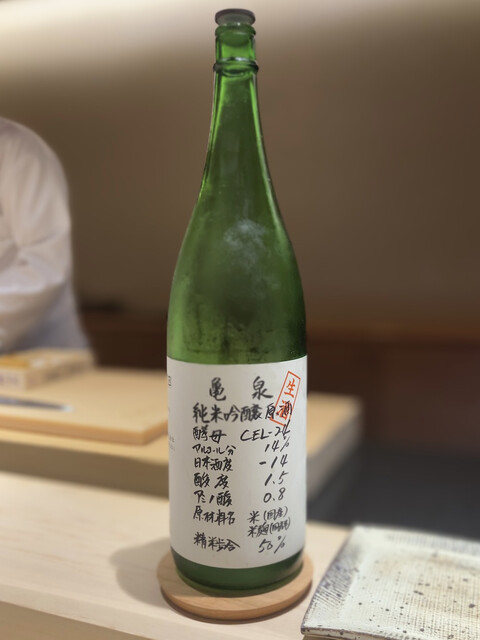 亀泉
生酒
純米吟醸原酒
酵母 CEL-24
アルコール分 14%
日本酒度 -14
酸度 1.5
アミノ酸 0.8
原材料名 米(国産)
米麹(国産)
精米歩合 50%